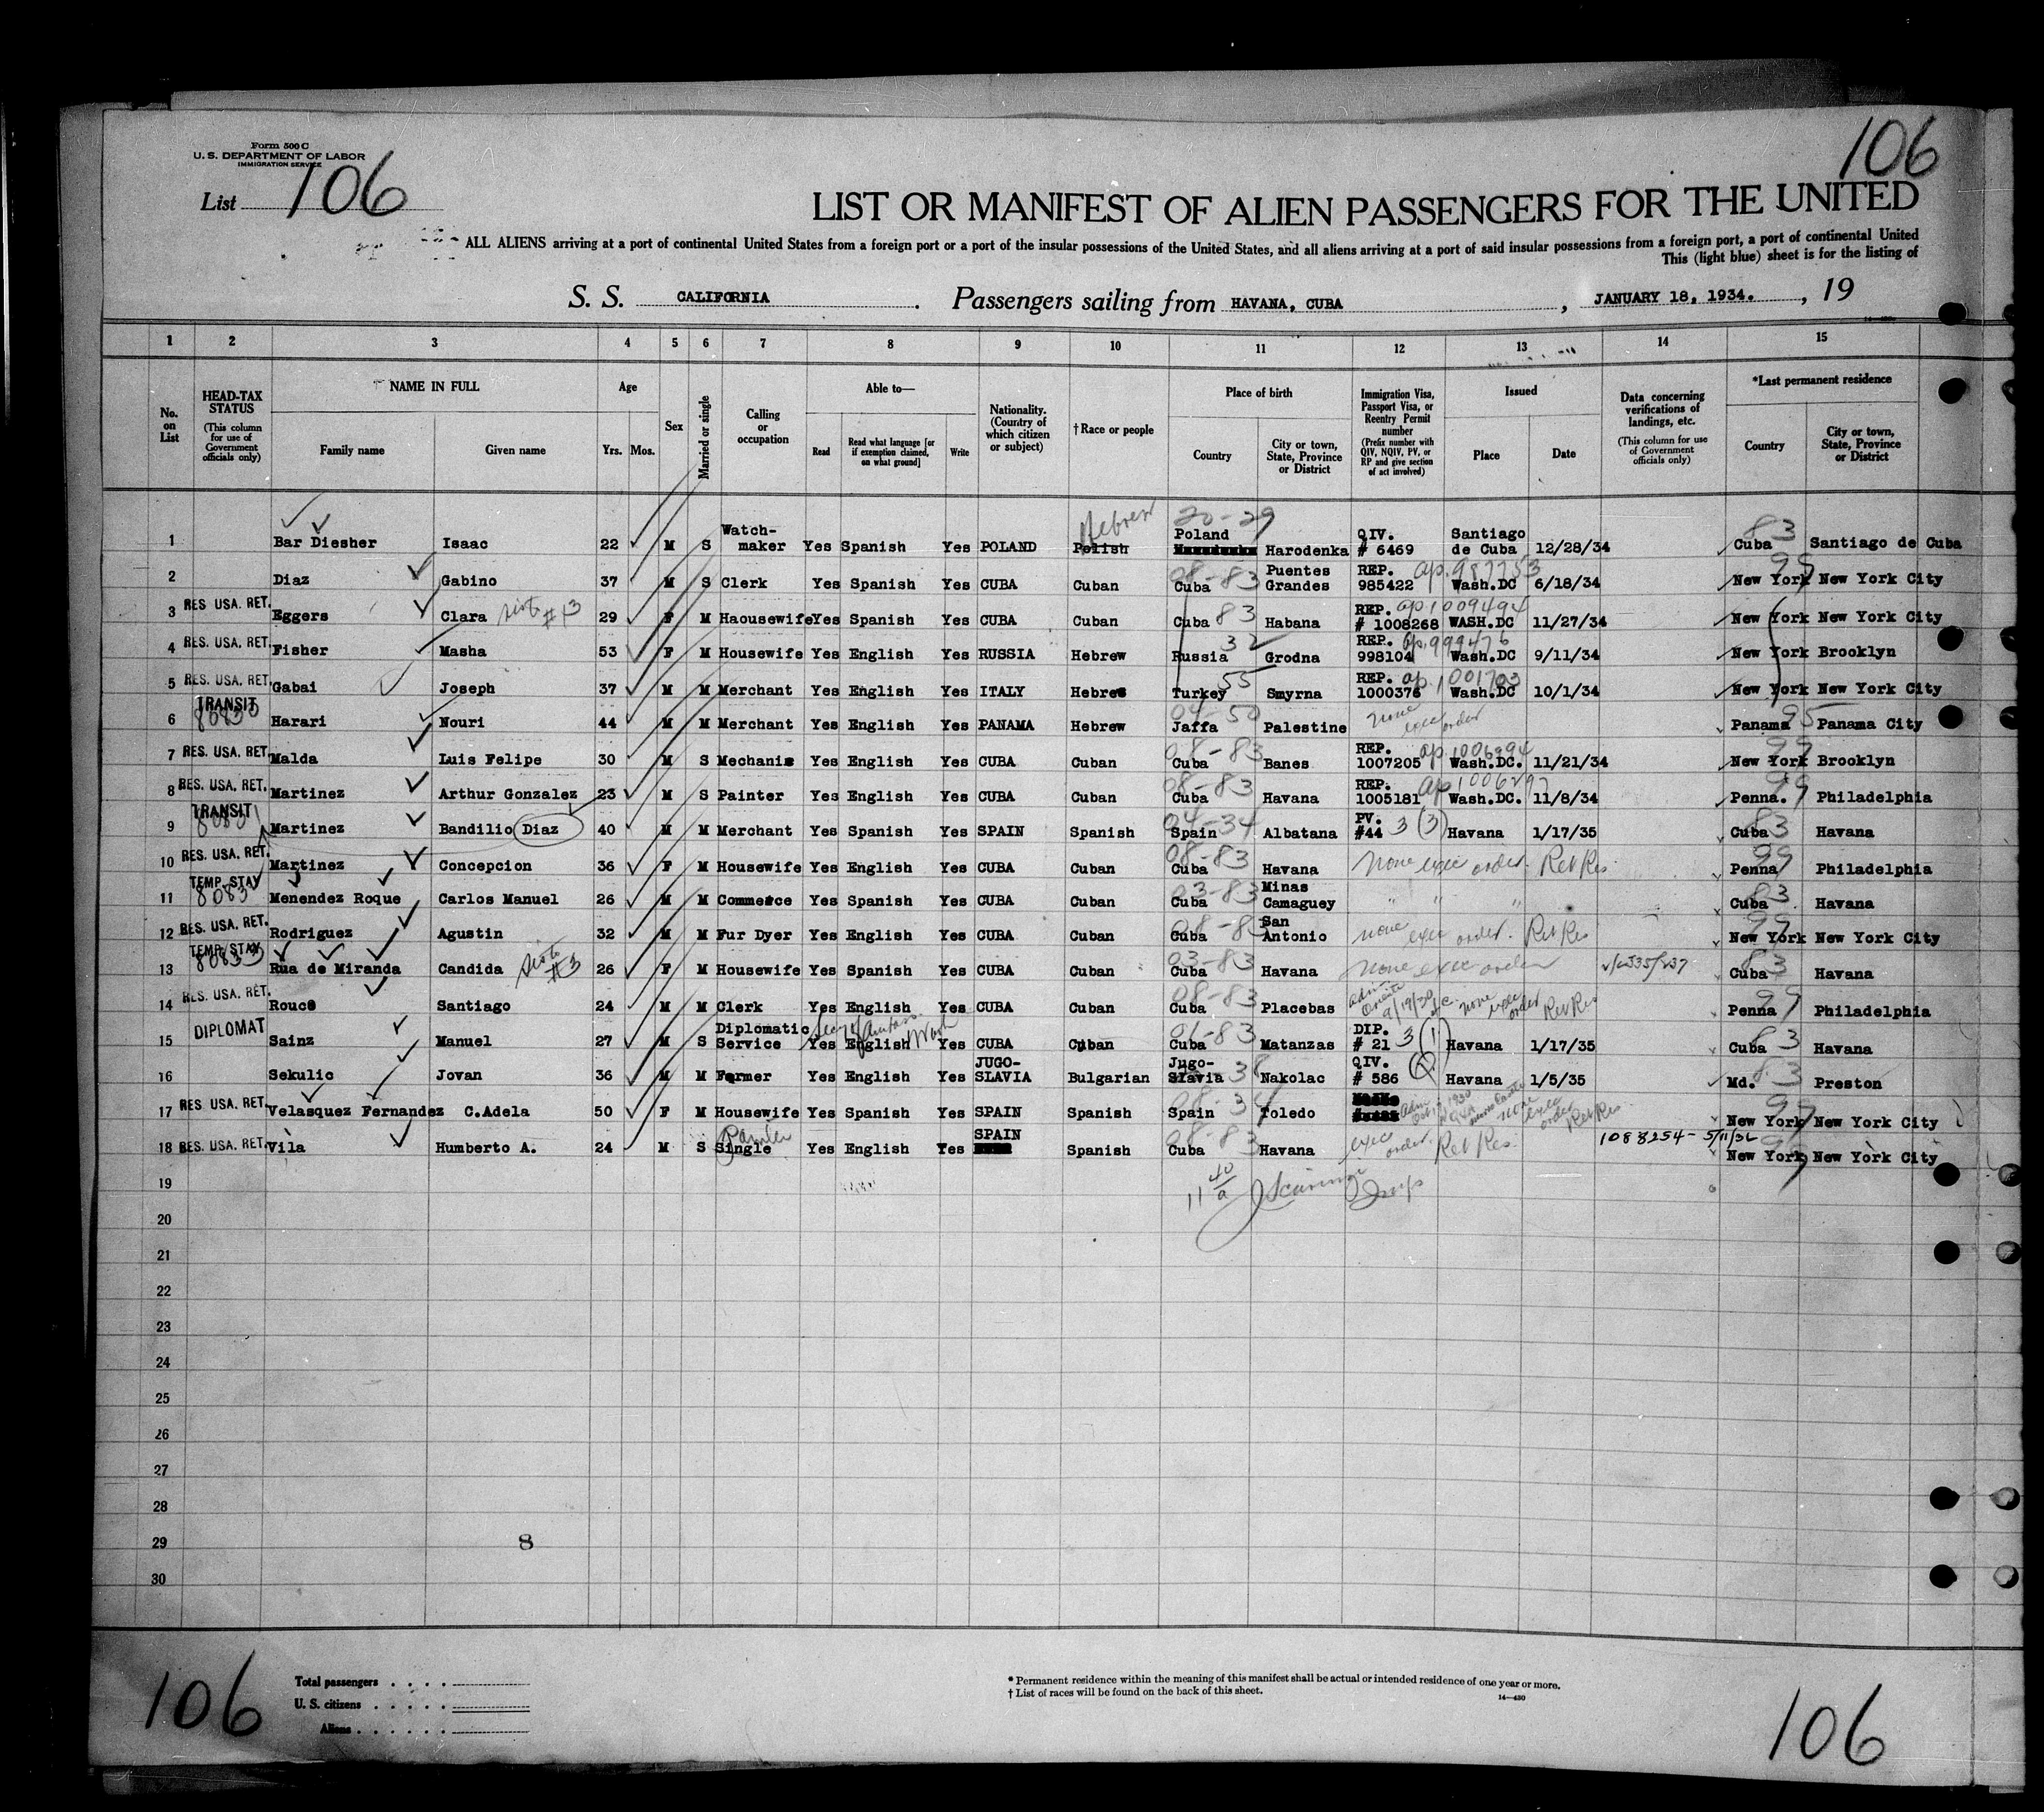 Form 500 C
U. S. DEPARTMENT OF LABOR
IMMIGRATION SERVICE
106
List 106
LIST OR MANIFEST OF ALIEN PASSENGERS FOR THE UNITED
ALL ALIENS arriving at a port of continental United States from a foreign port or a port of the insular possessions of the United States, and all aliens arriving at a port of said insular possessions from a foreign port, a port of continental United
This (light blue) sheet is for the listing of
S. S. CALIFORNIA. Passengers sailing from HAVANA, CUBA, JANUARY 18, 1934., 19
1 2 3 4 5 6 7 8 9 10 11 12 13 14 15
No. on List
HEAD-TAX STATUS (This column for use of Government officials only)
NAME IN FULL Family name Given name
Age Yrs. Mos.
Sex
Married or single
Calling or occupation
Able to— Read Read what language [or if exemption claimed, on what ground] Write
Nationality. (Country of which citizen or subject)
†Race or people
Place of birth Country City or town, State, Province or District
Immigration Visa, Passport Visa, or Reentry Permit number (Prefix number with QIV, NQIV, PV, or RP and give section of act involved)
Issued Place Date
Data concerning verifications of landings, etc. (This column for use of Government officials only)
*Last permanent residence Country City or town, State, Province or District
1 Bar Diesher Isaac 22 M S Watch-maker Yes Spanish Yes POLAND Polish Hebrew 20-29 Poland Harodenka QIV. # 6469 Santiago de Cuba 12/28/34 83 Cuba Santiago de Cuba
2 Diaz Gabino 37 M S Clerk Yes Spanish Yes CUBA Cuban 08-83 Cuba Puentes Grandes REP. 985422 ap. 987753 Wash.DC 6/18/34 New York New York City
3 RES. USA. RET. Eggers Clara #13 29 F M Haousewife Yes Spanish Yes CUBA Cuban Cuba 83 Habana REP. ap. 1009494 # 1008268 WASH.DC 11/27/34 New York New York City
4 RES. USA. RET. Fisher Masha 53 F M Housewife Yes English Yes RUSSIA Hebrew 32 Russia Grodna REP. ap. 999476 998104 Wash.DC 9/11/34 New York Brooklyn
5 RES. USA. RET. Gabai Joseph 37 M M Merchant Yes English Yes ITALY Hebrew 55 Turkey Smyrna REP. ap. 1001703 1000376 Wash.DC 10/1/34 New York New York City
6 TRANSIT 80830 Harari Nouri 44 M M Merchant Yes English Yes PANAMA Hebrew 04-50 Jaffa Palestine none exec order Panama 95 Panama City
7 RES. USA. RET. Malda Luis Felipe 30 M S Mechanic Yes English Yes CUBA Cuban 08-83 Cuba Banes REP. ap. 1006994 1007205 Wash.DC. 11/21/34 99 New York Brooklyn
8 RES. USA. RET. Martinez Arthur Gonzalez 23 M S Painter Yes English Yes CUBA Cuban 08-83 Cuba Havana REP. 1005181 Wash.DC. 11/8/34 Penna. 99 Philadelphia
9 TRANSIT Martinez Bandilio Diaz 40 M M Merchant Yes English Yes SPAIN Spanish 04-34 Spain Albatana PV. #44 3 (3) Havana 1/17/35 Cuba 83 Havana
10 RES. USA. RET. Martinez Concepcion 36 F M Housewife Yes English Yes CUBA Cuban 08-83 Cuba Havana None exec order. Ret Res. Penna 99 Philadelphia
11 TEMP. STAY Menendez Roque Carlos Manuel 26 M M Commerce Yes Spanish Yes CUBA Cuban 03-83 Cuba Minas Camaguey " " " Cuba 83 Havana
12 RES. USA. RET. Rodriguez Agustin 32 M M Fur Dyer Yes English Yes CUBA Cuban 08-83 Cuba San Antonio none exec order. Ret Res 99 New York New York City
13 TEMP. STAY 80833 Rua de Miranda Candida #3 26 F M Housewife Yes Spanish Yes CUBA Cuban 03-83 Cuba Havana None exec order Cuba 83 Havana
14 RES. USA. RET. Rouco Santiago 24 M M Clerk Yes English Yes CUBA Cuban 08-83 Cuba Placebas 9/19/30 none exec order Ret Res Penna 99 Philadelphia
15 DIPLOMAT Sainz Manuel 27 M S Diplomatic Service Yes English Yes CUBA Cuban 01-83 Cuba Matanzas DIP. # 21 3 (1) Havana 1/17/35 Cuba 83 Havana
16 Sekulic Jovan 36 M M Farmer Yes English Yes JUGO-SLAVIA Bulgarian Jugo-Slavia 38 Nakolac QIV. # 586 Havana 1/5/35 Md. Preston
17 RES. USA. RET. Velasquez Fernandez C.Adela 50 F M Housewife Yes Spanish Yes SPAIN Spanish 08-34 Spain Toledo none exec order Ret Res 99 New York New York City
18 RES. USA. RET. Vila Humberto A. 24 M S Single Yes English Yes SPAIN Spanish 08-83 Cuba Havana exec order. Ret Res. 1088254 - 5/11/32 New York New York City
19
20
21
22
23
24
25
26
27
28
29 8
30
106
Total passengers
U. S. citizens
Aliens
* Permanent residence within the meaning of this manifest shall be actual or intended residence of one year or more.
† List of races will be found on the back of this sheet.
14—430
106